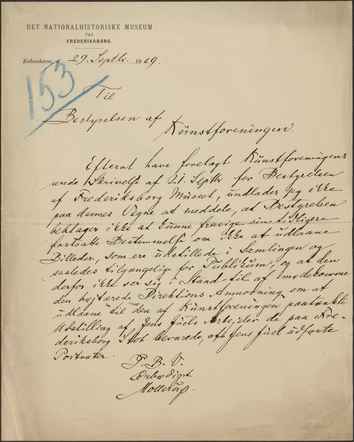 DET NATIONALHISTORISKE MUSEUM
PAA
FREDERIKSBORG.
København, 29. Septbr. 1889.
153
Til
Bestyrelsen af
Kunstforeningen
Efterat have forelagt Kunstforeningens
ærede Skrivelse af Septbr. for Bestyrelsen
af Frederiksborg Museet, undlader jeg ikke
paa dennes Vegne at meddele, at Bestyrelsen
beklager ikke at kunne fravige sin tidligere
Bestemmelse om ikke at udlaane
Billeder, som ere udstillede i Samlingen og
saaledes tilgængelige for Publikum, og at den
derfor ikke ser sig i Stand til at imødekomme
den højtærede Direktions Anmodning om at
udlaane til den af Kunstforeningen paatænkte
Udstilling af Jens Juels Arbejder de paa Fre-
deriksborg Slot værende, af Jens Juel udførte
Portræter.
P. B. V.
Ærbødigst